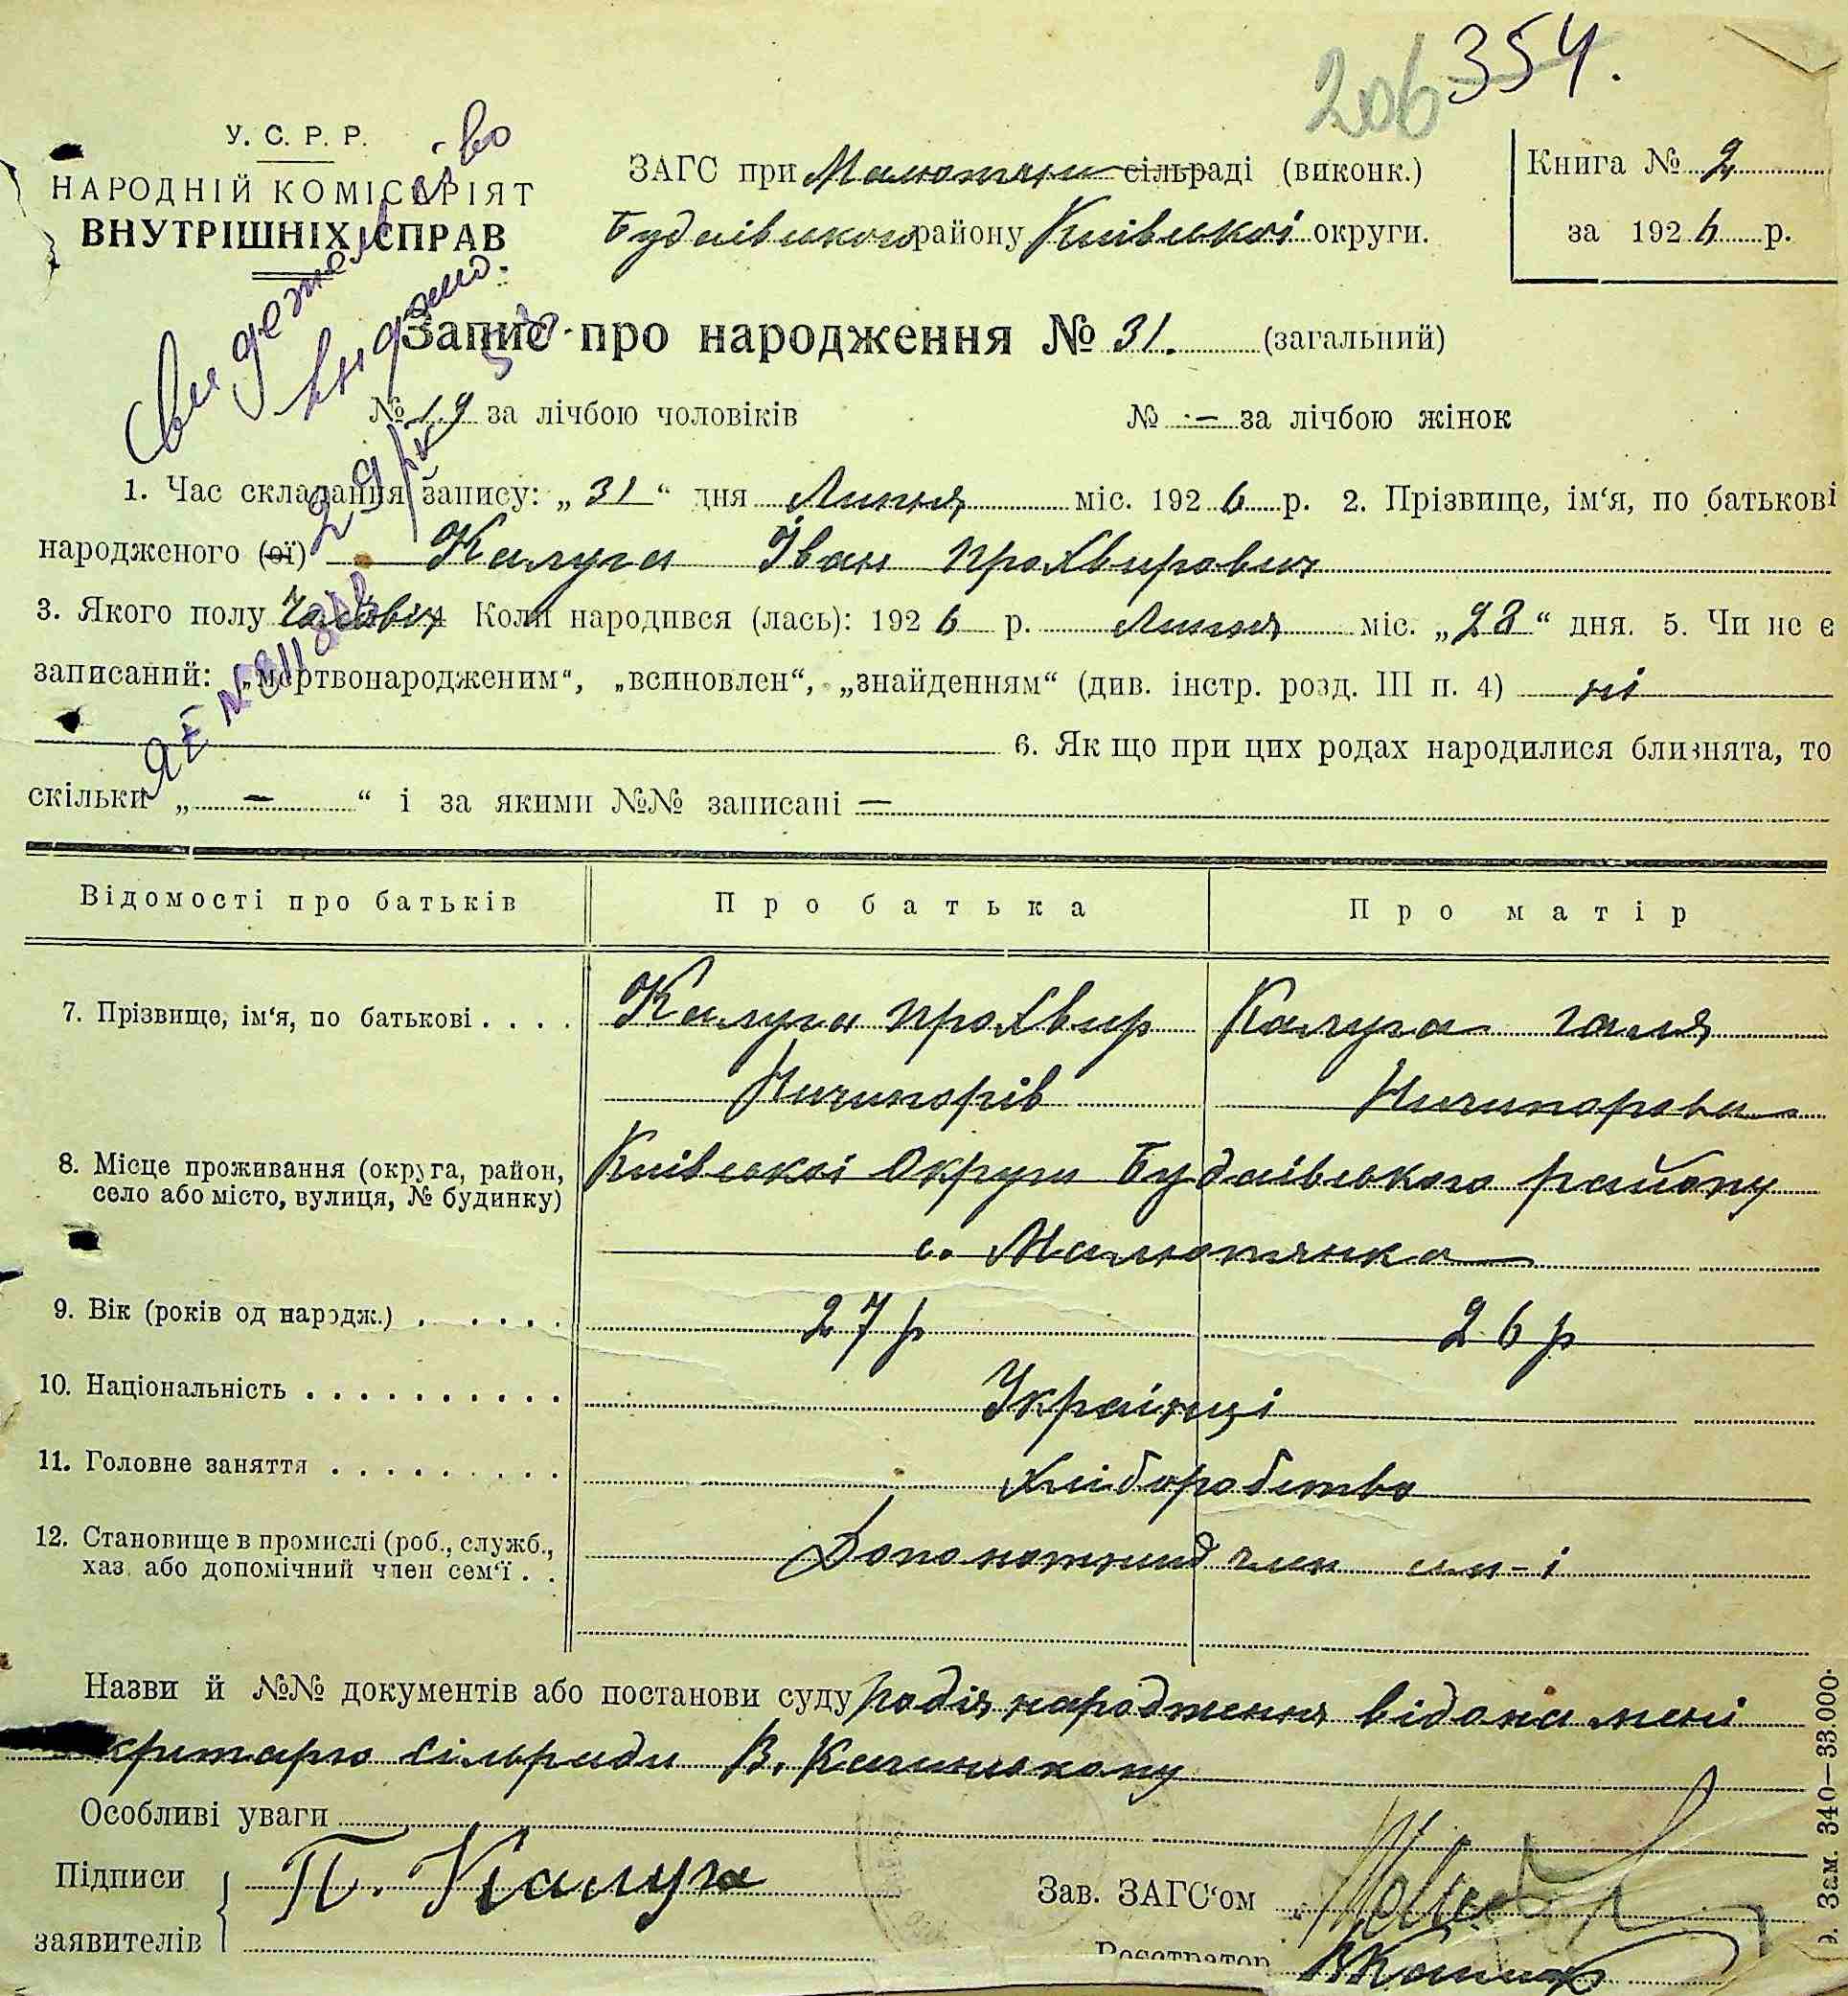 206 354.
У. С. Р. Р.
НАРОДНІЙ КОМІСАРІЯТ
ВНУТРІШНІХ СПРАВ
ЗАГС при Малютян сільраді (виконк.)
Будаівського району Київськоі округи.
Книга № 2
за 1926 р.
Свидетельство
видано.
29/IX
ЯЕ №
Запис про народження № 31. (загальний)
№ 19 за лічбою чоловіків № – за лічбою жінок
1. Час складання запису: „31“ дня Липня міс. 1926 р. 2. Прізвище, ім‘я, по батькові
народженого (ої) Калуга Іван Прохвирович
3. Якого полу Чоловіч 4 Коли народився (лась): 1926 р. Липня міс. „28“ дня. 5. Чи не є
записаний: „мертвонародженим“, „всиновлен“, „знайденням“ (див. інстр. розд. III п. 4) ні
6. Як що при цих родах народилися близнята, то
скільки „ – “ і за якими №№ записані =
Відомості про батьків Про батька Про матір
7. Прізвище, ім‘я, по батькові . . . . Калуга Прохвир Калуга Галя
Ничипорів Ничипорова
8. Місце проживання (округа, район, Київськоі Округи Будаівського району
село або місто, вулиця, № будинку)
с. Малютянка
9. Вік (років од народж.) . . . . . . 27 р 26 р
10. Національність . . . . . . . . . . Українці
11. Головне заняття . . . . . . . . . Хліборобство
12. Становище в промислі (роб., служб., Допоможний член сем-і
хаз. або допомічний член сем‘ї . .
Назви й №№ документів або постанови суду Подія народження відома мені
критарю сільради В. Качинському
Особливі уваги
Підписи П. Калуга Зав. ЗАГС‘ом
заявителів
Реєстратор
Зам. 340—33.000.